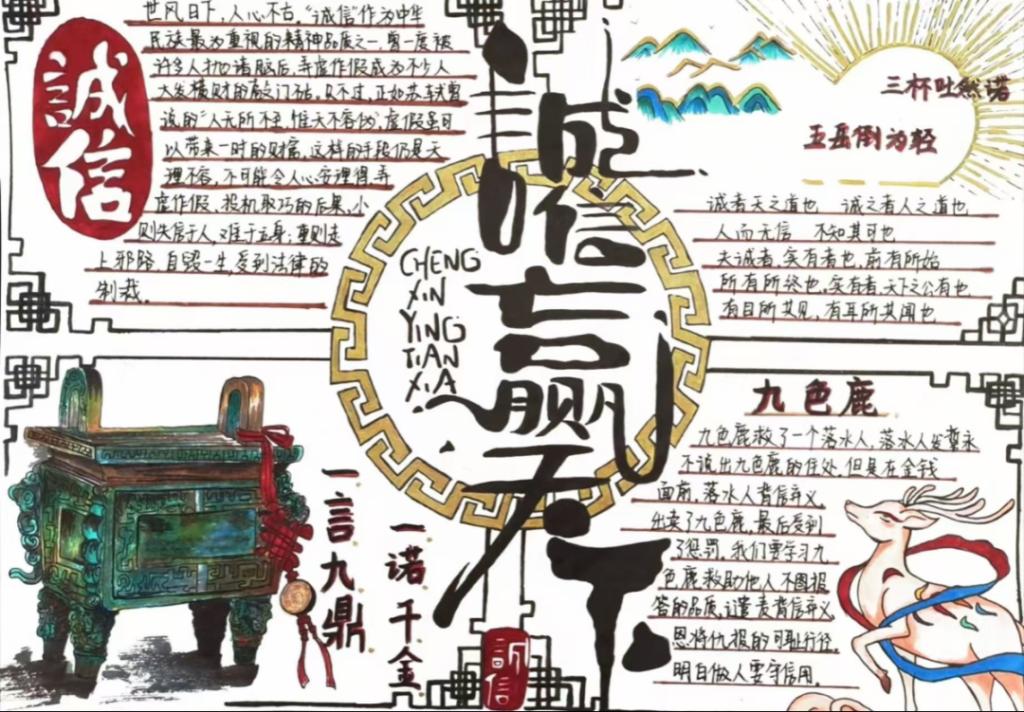 誠信
世风日下，人心不古。"诚信"作为中华
民族最为重视的精神品质之一，曾一度被
许多人抛诸脑后，弄虚作假成为不少人
大发横财的敲门砖。只不过，正如苏轼曾
说的"人无所不至，惟天不容伪，虚假虽可
以带来一时的财富，这样的手段仍是天
理不容，不可能令人心安理得。弄
虚作假、投机取巧的后果，小
则失信于人，难于立身；重则走
上邪路，自毁一生，受到法律的
制裁。
三杯吐然诺
五岳倒为轻
诚者天之道也 诚之者人之道也
人而无信 不知其可也
夫诚者，实有者也，前有所始
所有所终也，实有者，天下之公有也
有目所共见，有耳所共闻也
誠信赢天下
CHENG
XIN
YING
TIAN
XIA
一言九鼎
一诺千金
九色鹿
九色鹿救了一个落水人，落水人发誓永
不说出九色鹿的住处，但是在金钱
面前，落水人背信弃义
出卖了九色鹿，最后受到
了惩罚，我们要学习九
色鹿救助他人不图报
答的品质，谴责背信弃义
恩将仇报的可耻行径，
明白做人要守信用。